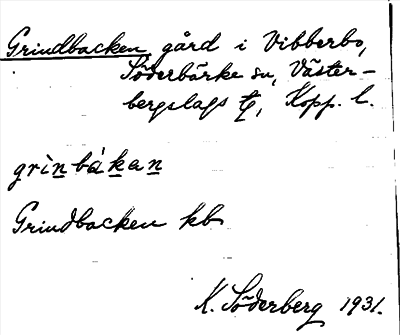 Grindbacken, gård i Vibberbo,
Söderbärke sn, Väster-
bergslags tg, Kopp. l.
grìnbákan
Grindbacken kb
K. Söderberg 1931.